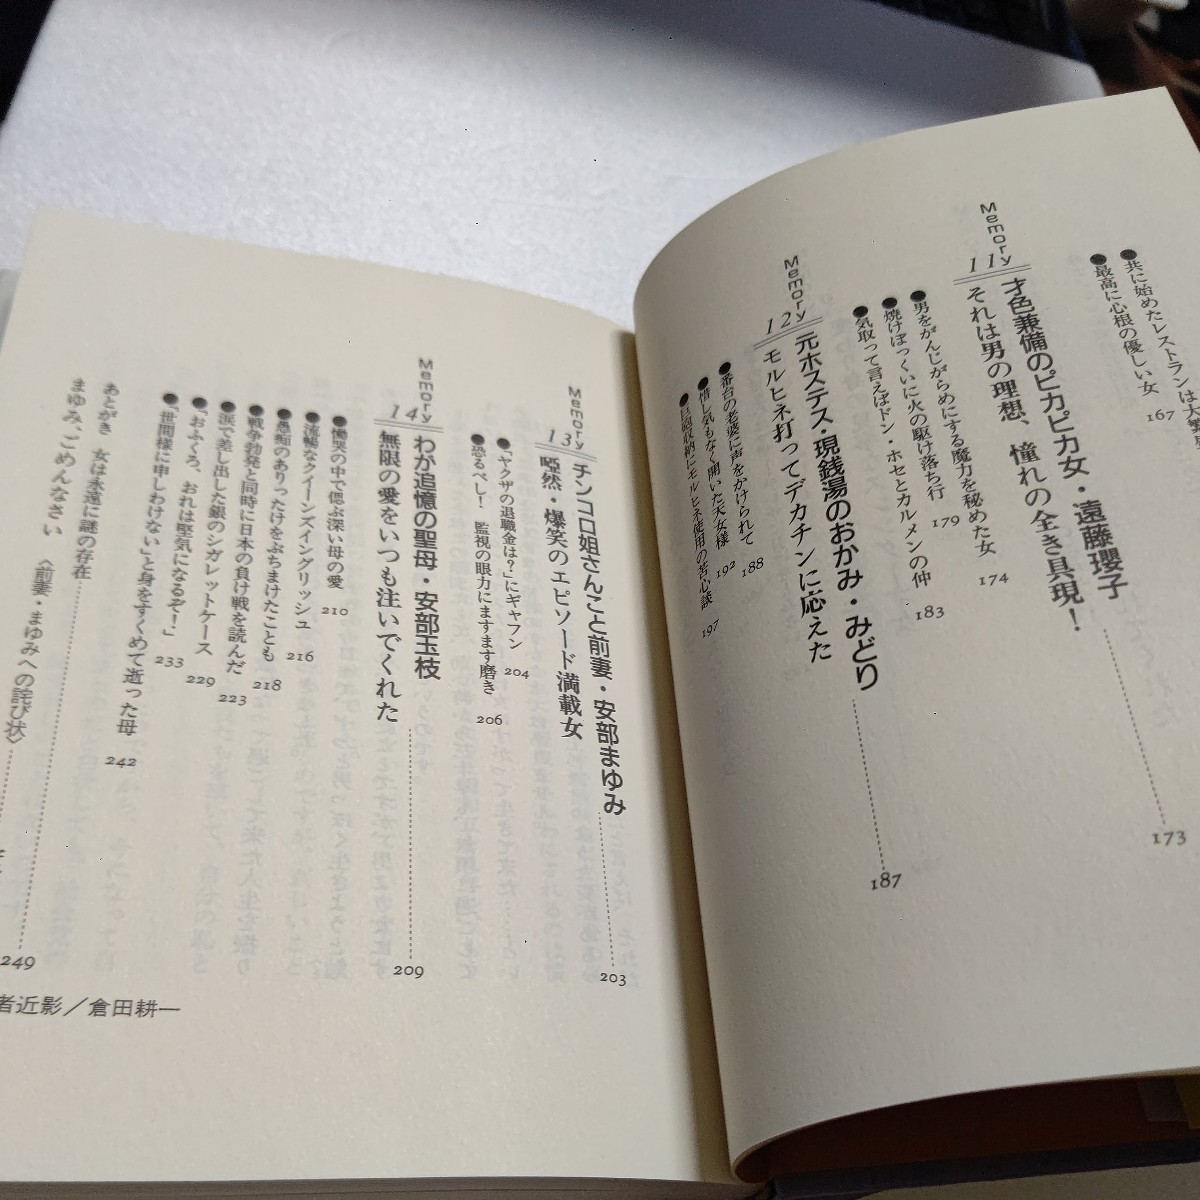 ●共に始めたレストランは大繁
●最高に心根の優しい女 167
Memory 11 才色兼備のピカピカ女・遠藤瓔子
それは男の理想、憧れの全き具現! 173
●男をがんじがらめにする魔力を秘めた女 174
●焼けぼっくいに火の駆け落ち行 179
●気取って言えばドン・ホセとカルメンの仲 183
Memory 12 元ホステス・現銭湯のおかみ・みどり
モルヒネ打ってデカチンに応えた 187
●番台の老婆に声をかけられて 188
●惜し気もなく開いた天女様 192
●巨砲収納にモルヒネ使用の苦心談 197
Memory 13 チンコロ姐さんこと前妻・安部まゆみ
啞然・爆笑のエピソード満載女 203
●「ヤクザの退職金は?」にギャフン 204
●恐るべし! 監視の眼力にますます磨き 206
Memory 14 わが追憶の聖母・安部玉枝
無限の愛をいつも注いでくれた 209
●慟哭の中で偲ぶ深い母の愛 210
●流暢なクイーンズイングリッシュ 216
●愚痴のありったけをぶちまけたことも 218
●戦争勃発と同時に日本の負け戦を読んだ 223
●涙で差し出した銀のシガレットケース 229
●「おふくろ、おれは堅気になるぞ!」 233
●「世間様に申しわけない」と身をすくめて逝った母 242
あとがき 女は永遠に謎の存在
まゆみ、ごめんなさい 〈前妻・まゆみへの詫び状〉 249
者近影/倉田耕一